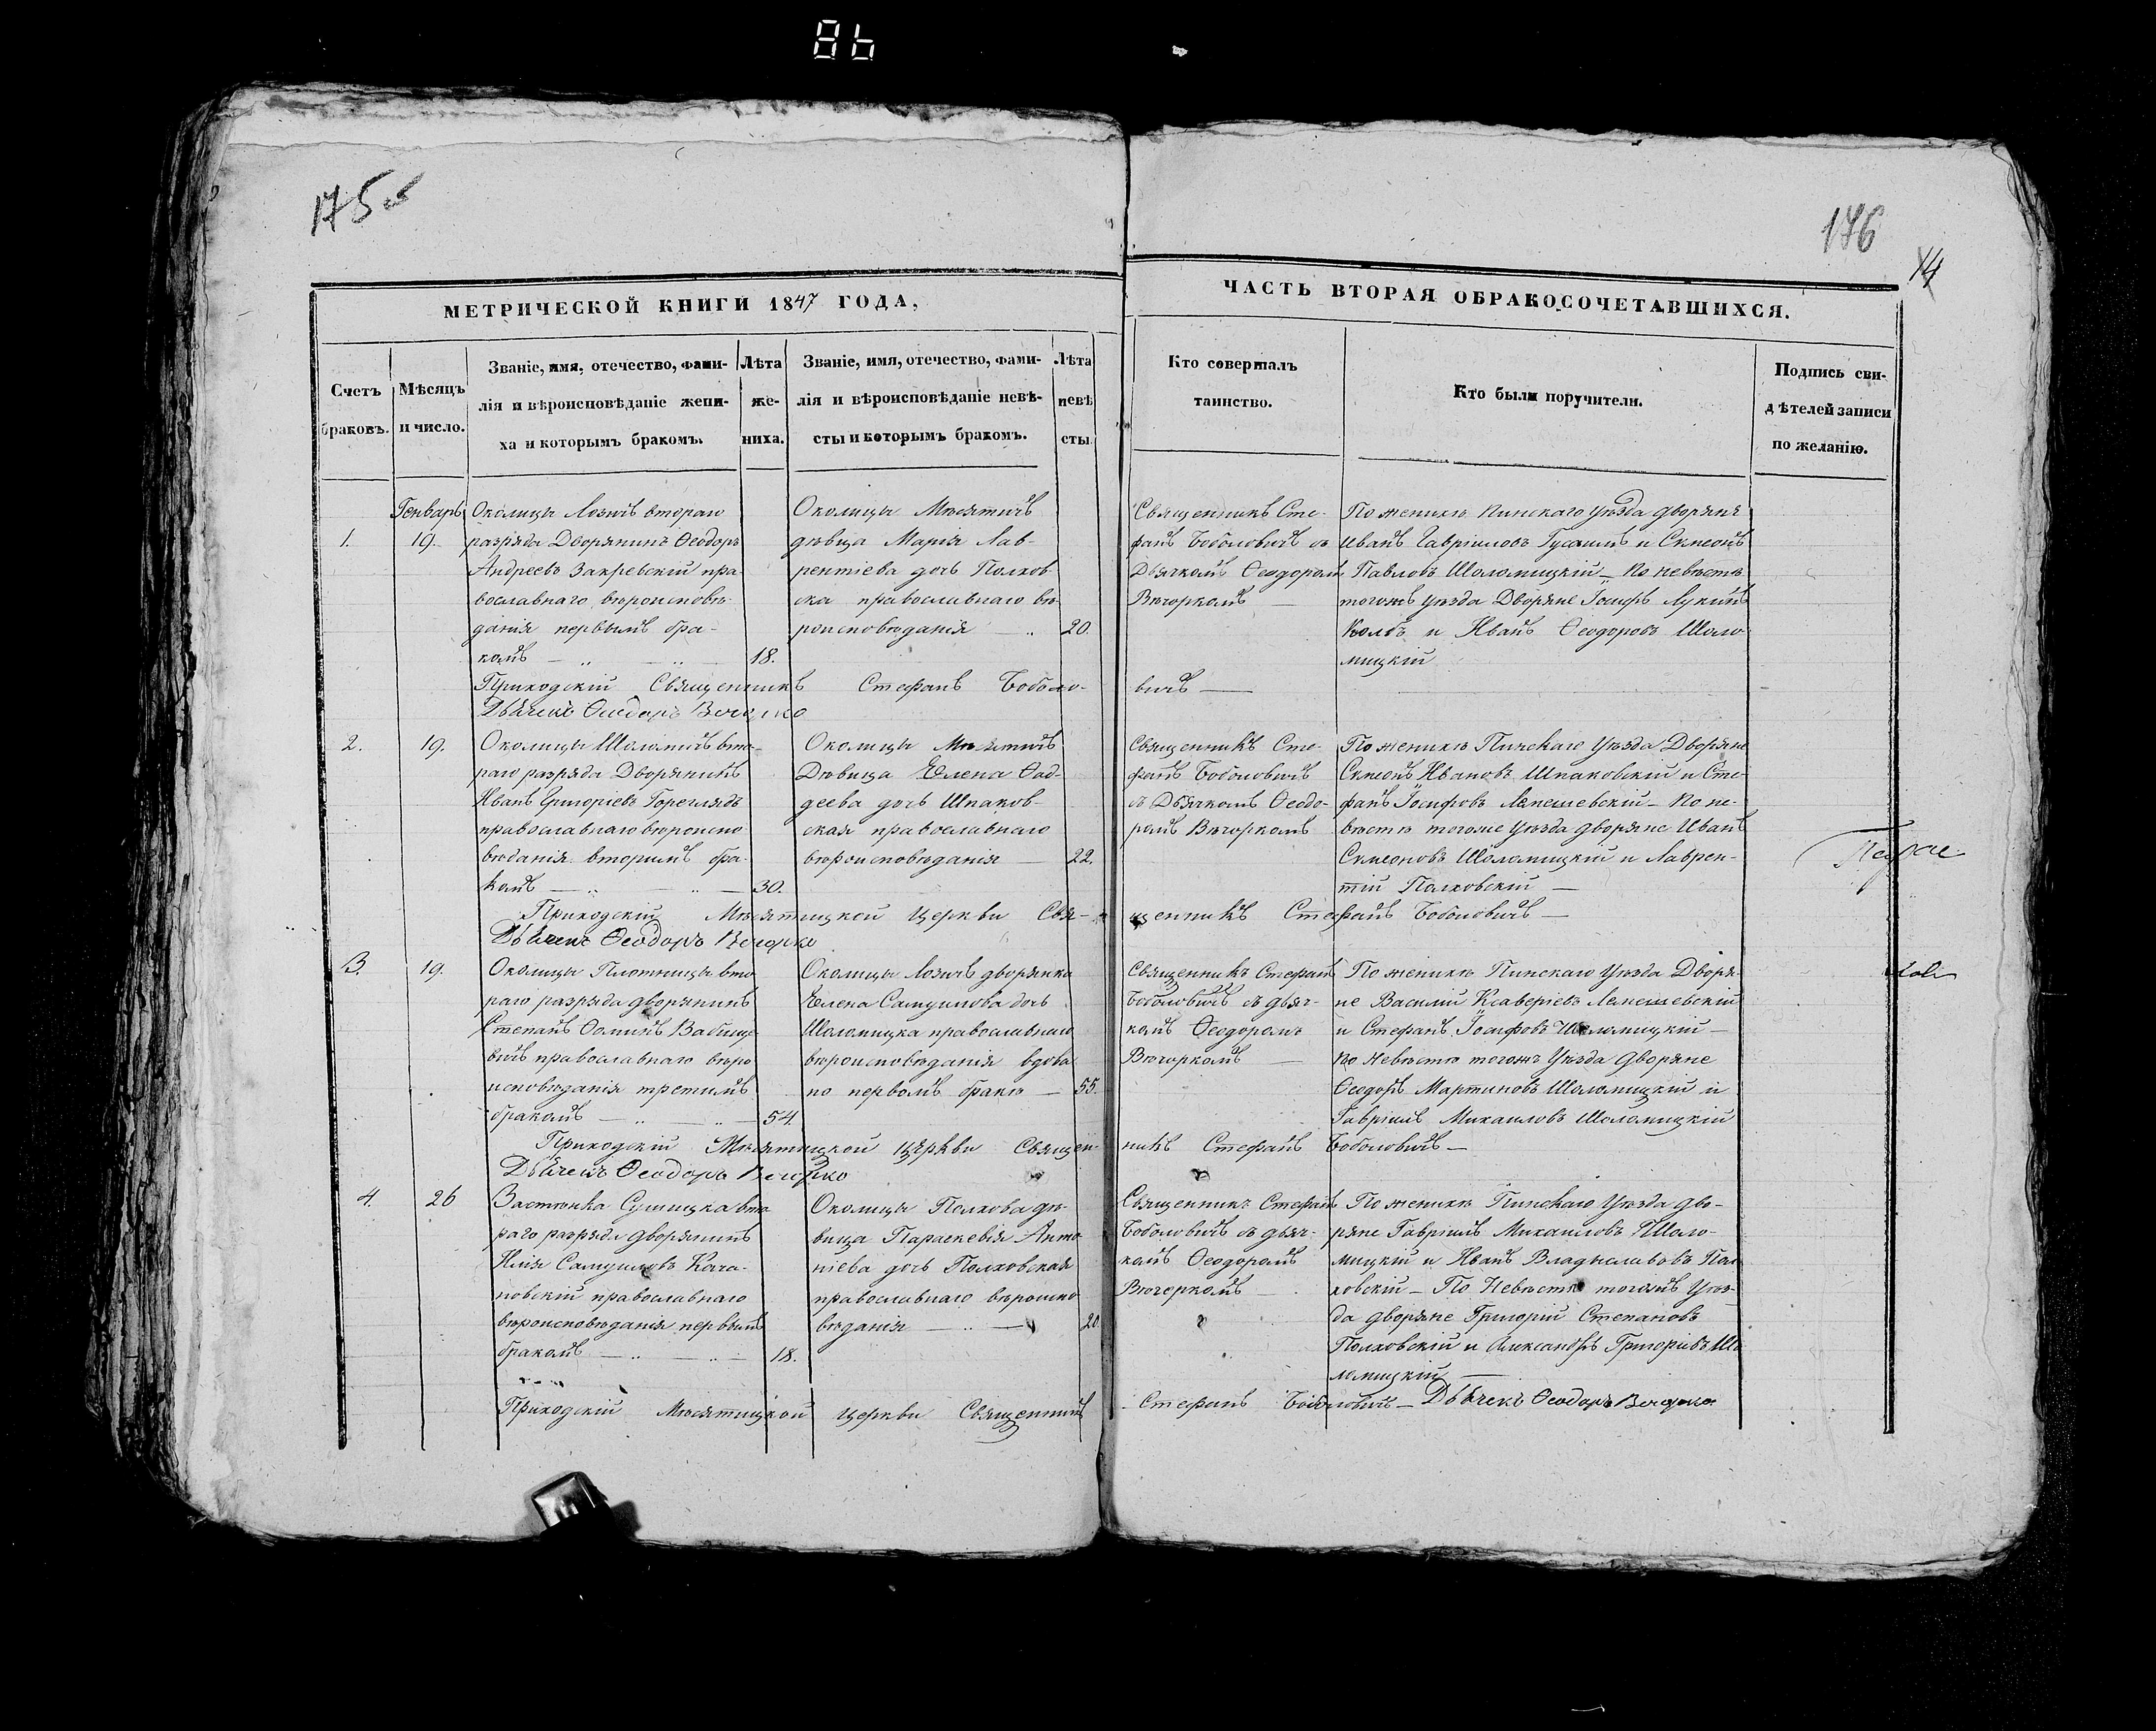 86
175 об
176
14
МЕТРИЧЕСКОЙ КНИГИ 1847 ГОДА,
ЧАСТЬ ВТОРАЯ ОБРАКОСОЧЕТАВШИХСЯ.
Счетъ
браковъ.
Мѣсяцъ
и число.
Званіе, имя, отечество, фами-
лія и вѣроисповѣданіе жени-
ха и которымъ бракомъ.
Лѣта
же-
ниха.
Званіе, имя, отечество, фами-
лія и вѣроисповѣданіе невѣ-
сты и которымъ бракомъ.
Лѣта
невѣ
сты
Кто совершалъ
таинство.
Кто были поручители.
Подпись сви-
дѣтелей записи
по желанію.
1.
Генварь
19.
Околицы Лозичъ втораго
разряда Дворянинъ Ѳеодоръ
Андреевъ Закревскій пра-
вославнаго вѣроисповѣ-
данія первымъ бра-
комъ
18.
Околицы Мѣсятичъ
дѣвица Марія Лав-
рентіева дочь Полхов-
ска православнаго вѣ-
роисповѣданія
20.
Священникъ Сте-
фанъ Боболовичъ съ
Дьячкомъ Ѳеодоромъ
Вечоркомъ
По женихѣ Пинскаго уѣзда дворяне
Иванъ Гавріиловъ и Симеонъ
Павловъ Шоломицкій - По невѣстѣ
тогожъ уѣзда Дворяне Іосифъ Лукинъ
Колбъ и Иванъ Ѳеодоровъ Шоло-
мицкій
Приходскій Священникъ Стефанъ Боболо-
вичъ
Дьячекъ Ѳеодоръ Вечорко
2.
19.
Околицы Шоломичъ вто-
раго разряда Дворянинъ
Иванъ Григоріевъ Гореглядъ
православнаго вѣроиспо
вѣданія вторымъ бра-
комъ
30.
Околицы Мѣсятичъ
Дѣвица Елена Ѳад-
деева дочь Шпаков-
ская православнаго
вѣроисповѣданія
22.
Священникъ Сте-
фанъ Боболовичъ
съ Дьячкомъ Ѳеодо-
ромъ Вечоркомъ
По женихѣ Пинскаго Уѣзда Дворяне
Симеонъ Ивановъ Шпаковскій и Сте-
фанъ Іосифовъ Лемешевскій - По не-
вѣстѣ тогоже Уѣзда дворяне Иванъ
Симеоновъ Шоломицкій и Лаврен-
тій Полховскій
Приходскій Мѣсятицкой Церкви Свя-
щенникъ Стефанъ Боболовичъ
Дьячекъ Ѳеодоръ Вечорко
3.
19.
Околицы Плотницы вто
раго разряда дворянинъ
Степанъ Ѳоминъ Вабище-
вичъ православнаго вѣро
исповѣданія третимъ
бракомъ
54
Околицы Лозичъ дворянка
Елена Самуилова дочь
Шоломицка православнаго
вѣроисповѣданія вдова
по первомъ бракѣ
55.
Священникъ Стефанъ
Боболовичъ съ дьяч-
комъ Ѳеодоромъ
Вечоркомъ
По женихѣ Пинскаго Уѣзда Дворя-
не Василій Ксаверіевъ Лемешевскій
и Стефанъ Іосифовъ Шоломицкій
По Невѣстѣ тогожъ Уѣзда Дворяне
Ѳеодоръ Мартиновъ Шоломицкій и
Гавріилъ Михаиловъ Шоломицкій
Приходскій Мѣсятицкой Церкви Священ-
никъ Стефанъ Боболовичъ
Дьячекъ Ѳеодоръ Вечорко
4.
26
Застѣнка Сушицка вто
раго разряда дворянинъ
Илія Самуиловъ Кача-
новскій православнаго
вѣроисповѣданія первымъ
бракомъ
18.
Околицы Полхова дѣ-
вица Параскевія Анто
ніева дочь Полховская
православнаго вѣроиспо
вѣданія
20
Священникъ Стефанъ
Боболовичъ съ дьяч-
комъ Ѳеодоромъ
Вечоркомъ
По женихѣ Пинскаго Уѣзда дво-
ряне Гавріилъ Михаиловъ Шоло-
мицкій и Иванъ Владыславовъ Пол
ховскій - По Невѣстѣ тогожъ Уѣз-
да дворяне Григорій Степановъ
Полховскій и Александръ Григоріевъ Шо
ломицкій
Приходскій Мѣсятицкой Церкви Священникъ
Стефанъ Боболовичъ - Дьячекъ Ѳеодоръ Вечорко